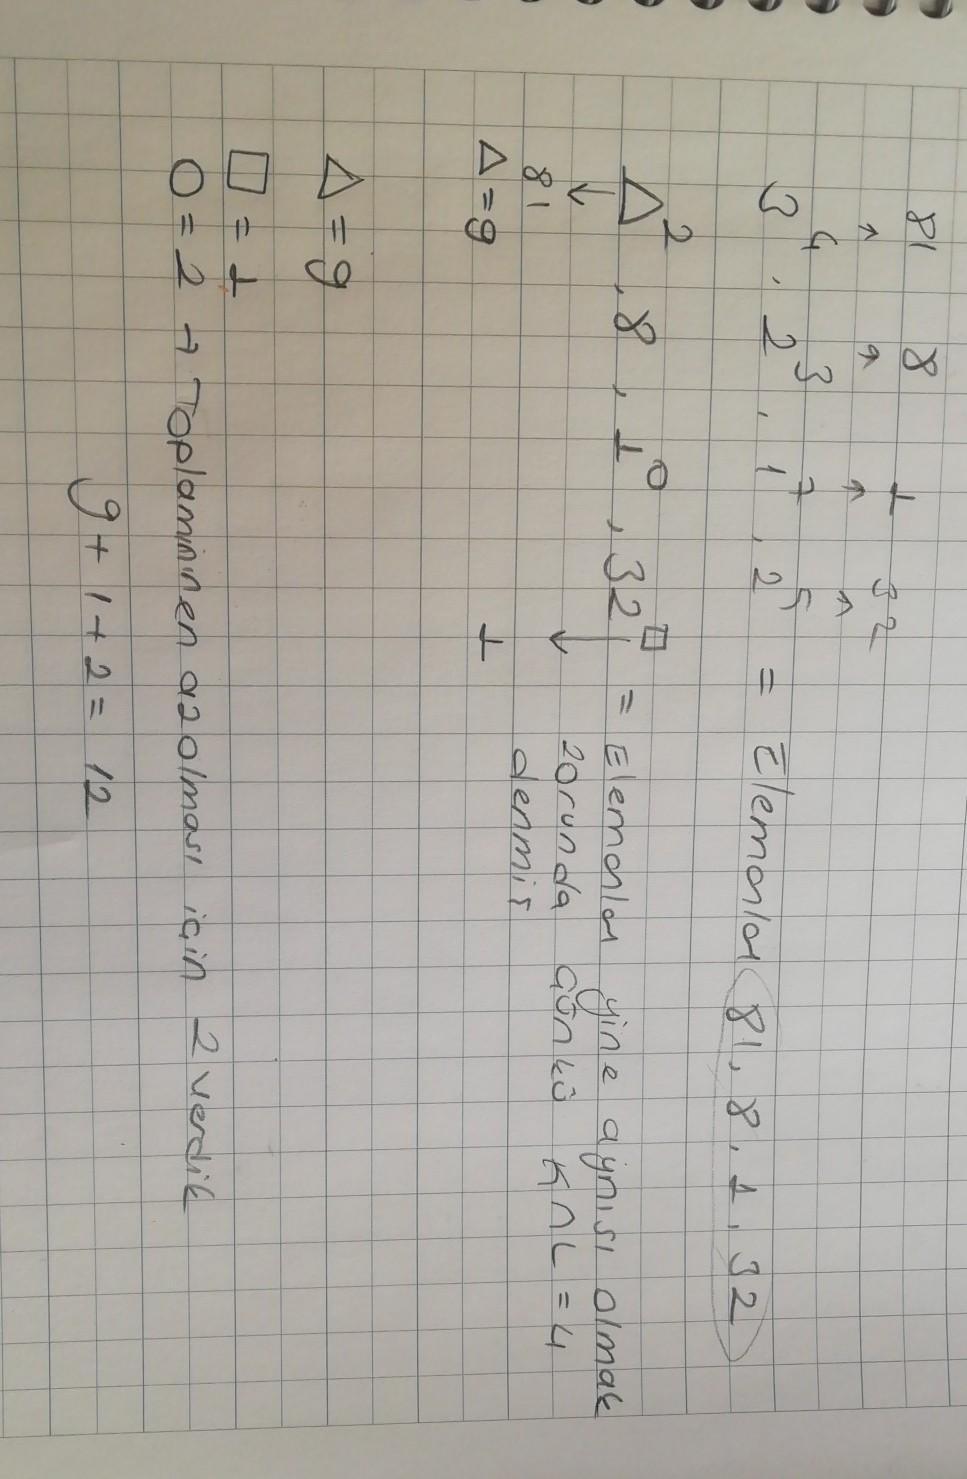 81 8 1 32
↑ ↑ ↑ ↑
3⁴ . 2³ . 1⁷ , 2⁵ = Elemanlar 81, 8, 1, 32
△² , 8 , 1⁰ , 32□ = Elemanlar yine aynısı olmak
↓ ↓ zorunda çünkü KnL = 4
81 1 denmiş
△ = 9
△ = 9
□ = 1
O = 2 → Toplamının en az olması için 2 verdik
9 + 1 + 2 = 12